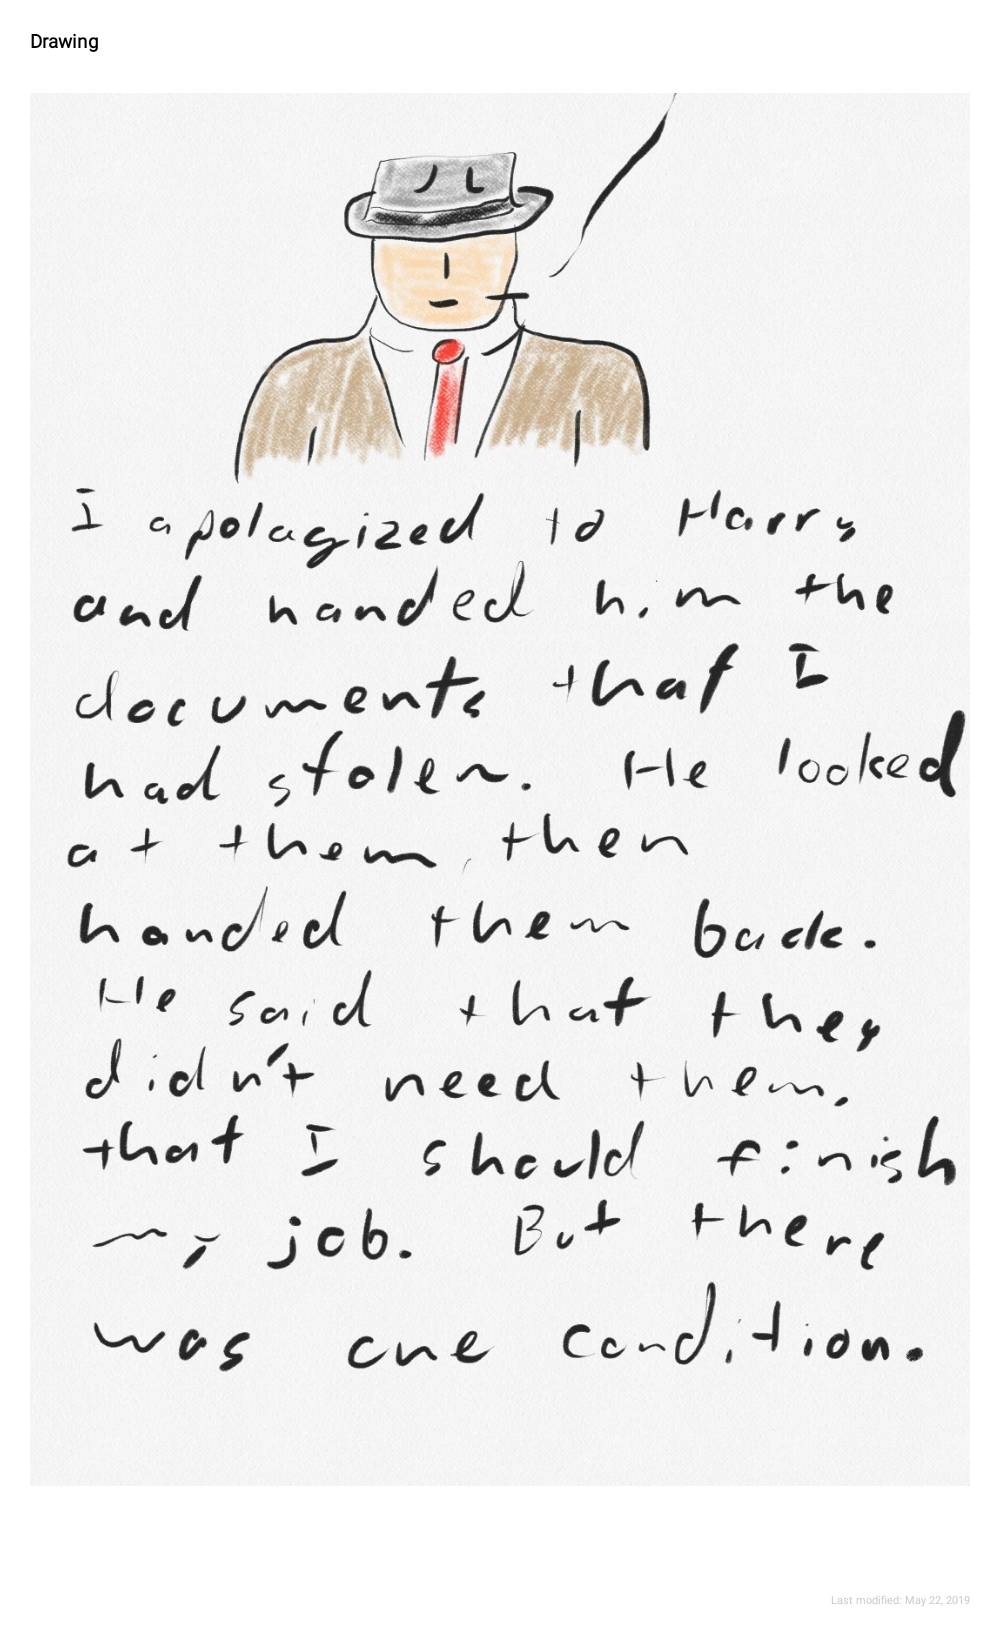 Drawing
I apolagized to Harry
and handed him the
documents that I
had stolen. He looked
at them, then
handed them back.
He said that they
didn't need them,
that I should finish
my job. But there
was one condition.
Last modified: May 22, 2019